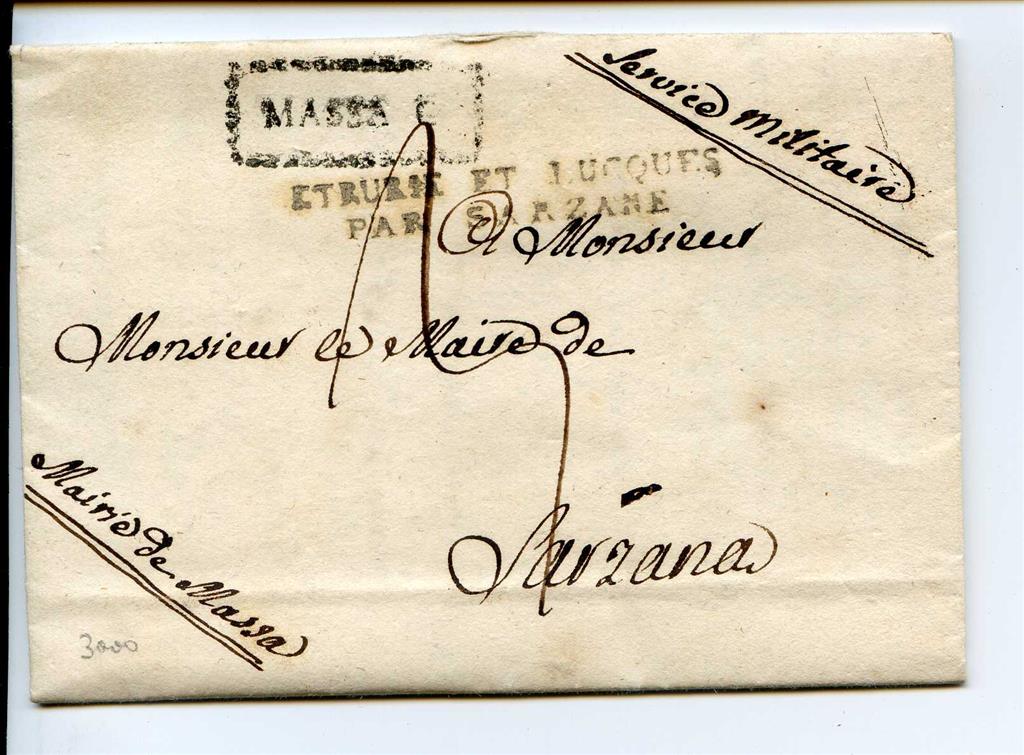 MASSA C
Service Militaire
ETRURIE ET LUCQUES
PAR SARZANE
A Monsieur
Monsieur le Maire de
Sarzana
Mairie de Massa
3000